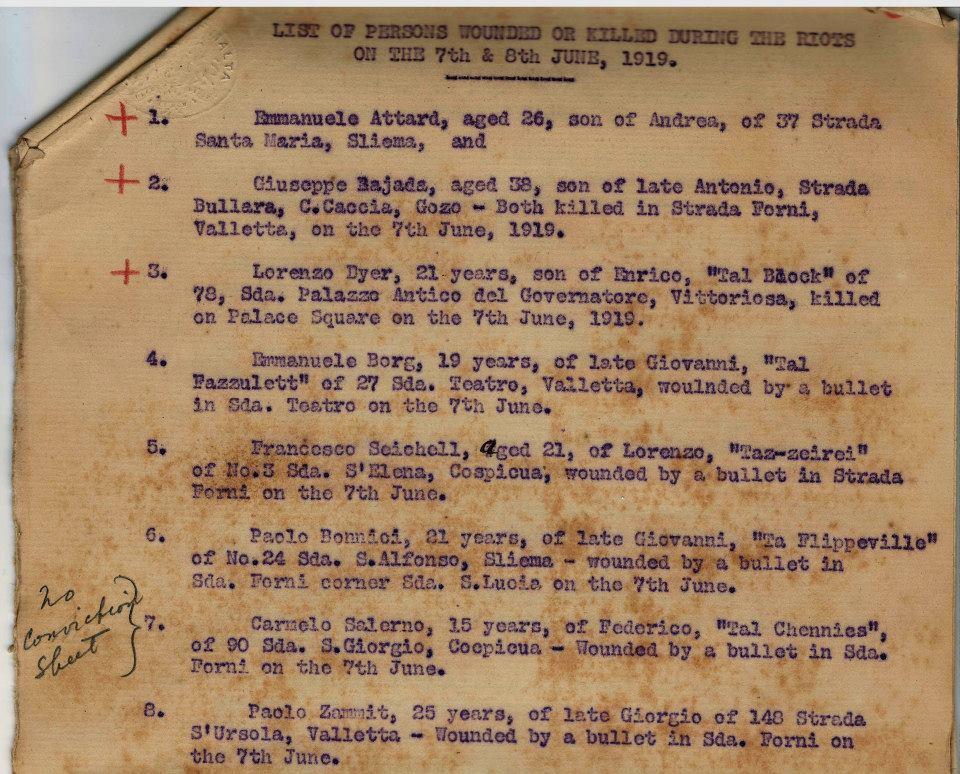 LIST OF PERSONS WOUNDED OR KILLED DURING THE RIOTS
ON THE 7th & 8th JUNE, 1919.
MALTA
+ 1. Emmanuele Attard, aged 26, son of Andrea, of 37 Strada
Santa Maria, Sliema, and
+ 2. Giuseppe Bajada, aged 38, son of late Antonio, Strada
Bullara, C.Caccia, Gozo - Both killed in Strada Forni,
Valletta, on the 7th June, 1919.
+ 3. Lorenzo Dyer, 21 years, son of Enrico, "Tal Block" of
78, Sda. Palazzo Antico del Governatore, Vittoriosa, killed
on Palace Square on the 7th June, 1919.
4. Emmanuele Borg, 19 years, of late Giovanni, "Tal
Fazzulett" of 27 Sda. Teatro, Valletta, woulnded by a bullet
in Sda. Teatro on the 7th June.
5. Francesco Seichell, aged 21, of Lorenzo, "Taz-zeirei"
of No.3 Sda. S'Elena, Cospicua, wounded by a bullet in Strada
Forni on the 7th June.
6. Paolo Bonnici, 21 years, of late Giovanni, "Ta Flippeville"
of No.24 Sda. S.Alfonso, Sliema - wounded by a bullet in
Sda. Forni corner Sda. S.Lucia on the 7th June.
no
conviction
sheet
7. Carmelo Salerno, 15 years, of Federico, "Tal Chennies",
of 90 Sda. S.Giorgio, Cocpicua - Wounded by a bullet in Sda.
Forni on the 7th June.
8. Paolo Zammit, 25 years, of late Giorgio of 148 Strada
S'Ursola, Valletta - Wounded by a bullet in Sda. Forni on
the 7th June.